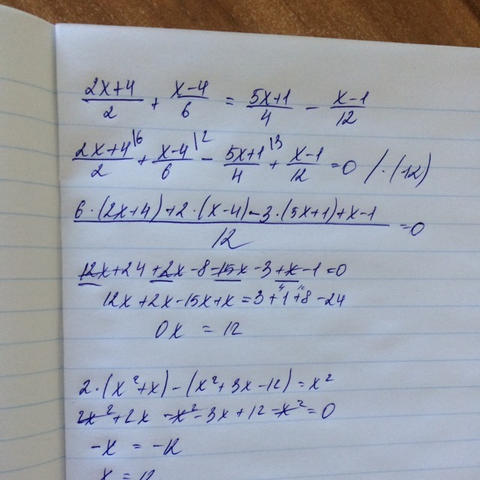 (2x+4)/2 + (x-4)/6 = (5x+1)/4 - (x-1)/12
(2x+4\6)/2 + (x-4\2)/6 - (5x+1\3)/4 + (x-1)/12 = 0 /·(12)
(6·(2x+4)+2·(x-4)-3·(5x+1)+x-1)/12 = 0
12x+24+2x-8-15x-3+x-1=0
12x+2x-15x+x=3+1+8-24
0x = 12
2·(x²+x)-(x²+3x-12)=x²
2x²+2x-x²-3x+12-x²=0
-x = -12
x = 12